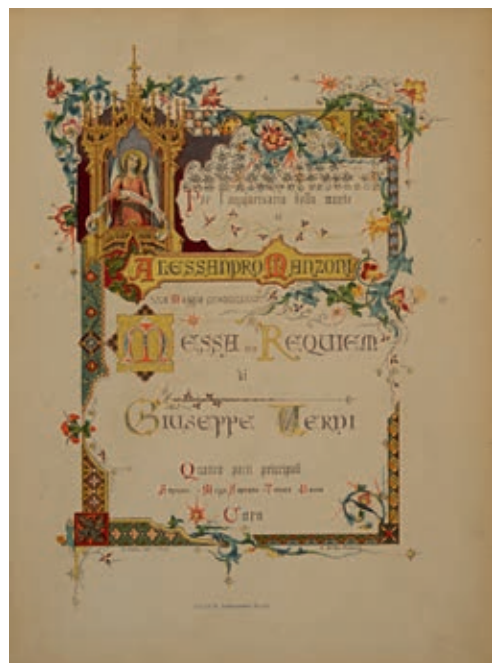 Per l'anniversario della morte
di
ALESSANDRO MANZONI
MESSA DA REQUIEM
di
GIUSEPPE VERDI
Quattro parti principali
Soprano - Mezzo Soprano - Tenore - Basso
Coro